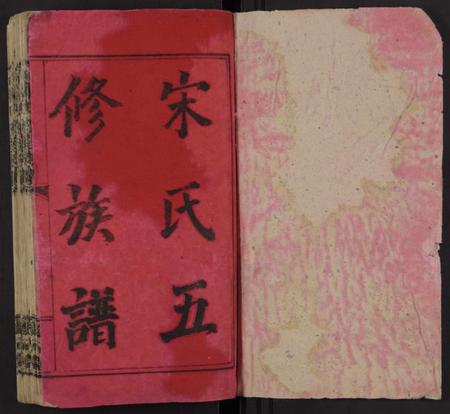 宋氏五
修族譜